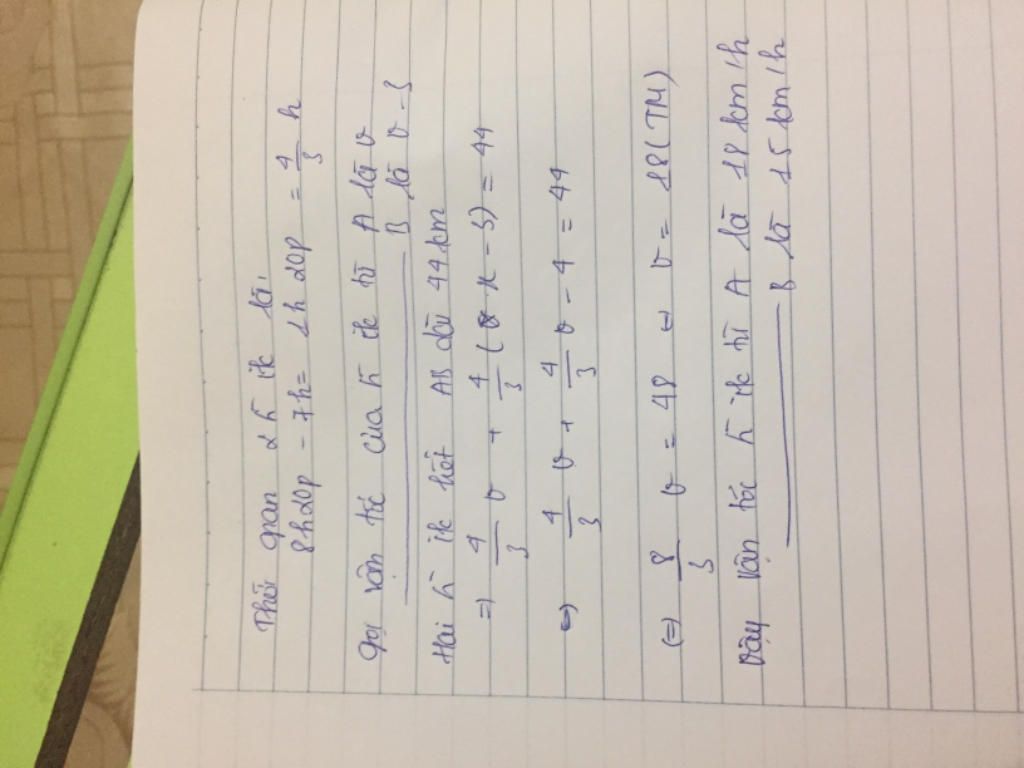 Thời gian 2 h ik là:
8h20p - 7h = 1h 20p = 4/3 h
Gọi vận tốc của h ik từ A là v
B là v - 3
Hai h ik hết AB dài 44km
=> 4/3 v + 4/3 (x - 3) = 44
<=> 4/3 v + 4/3 v - 4 = 44
(=) 8/3 v = 48 <=> v = 18 (TM)
Vậy vận tốc h ik từ A là 18 km/h
B là 15 km/h